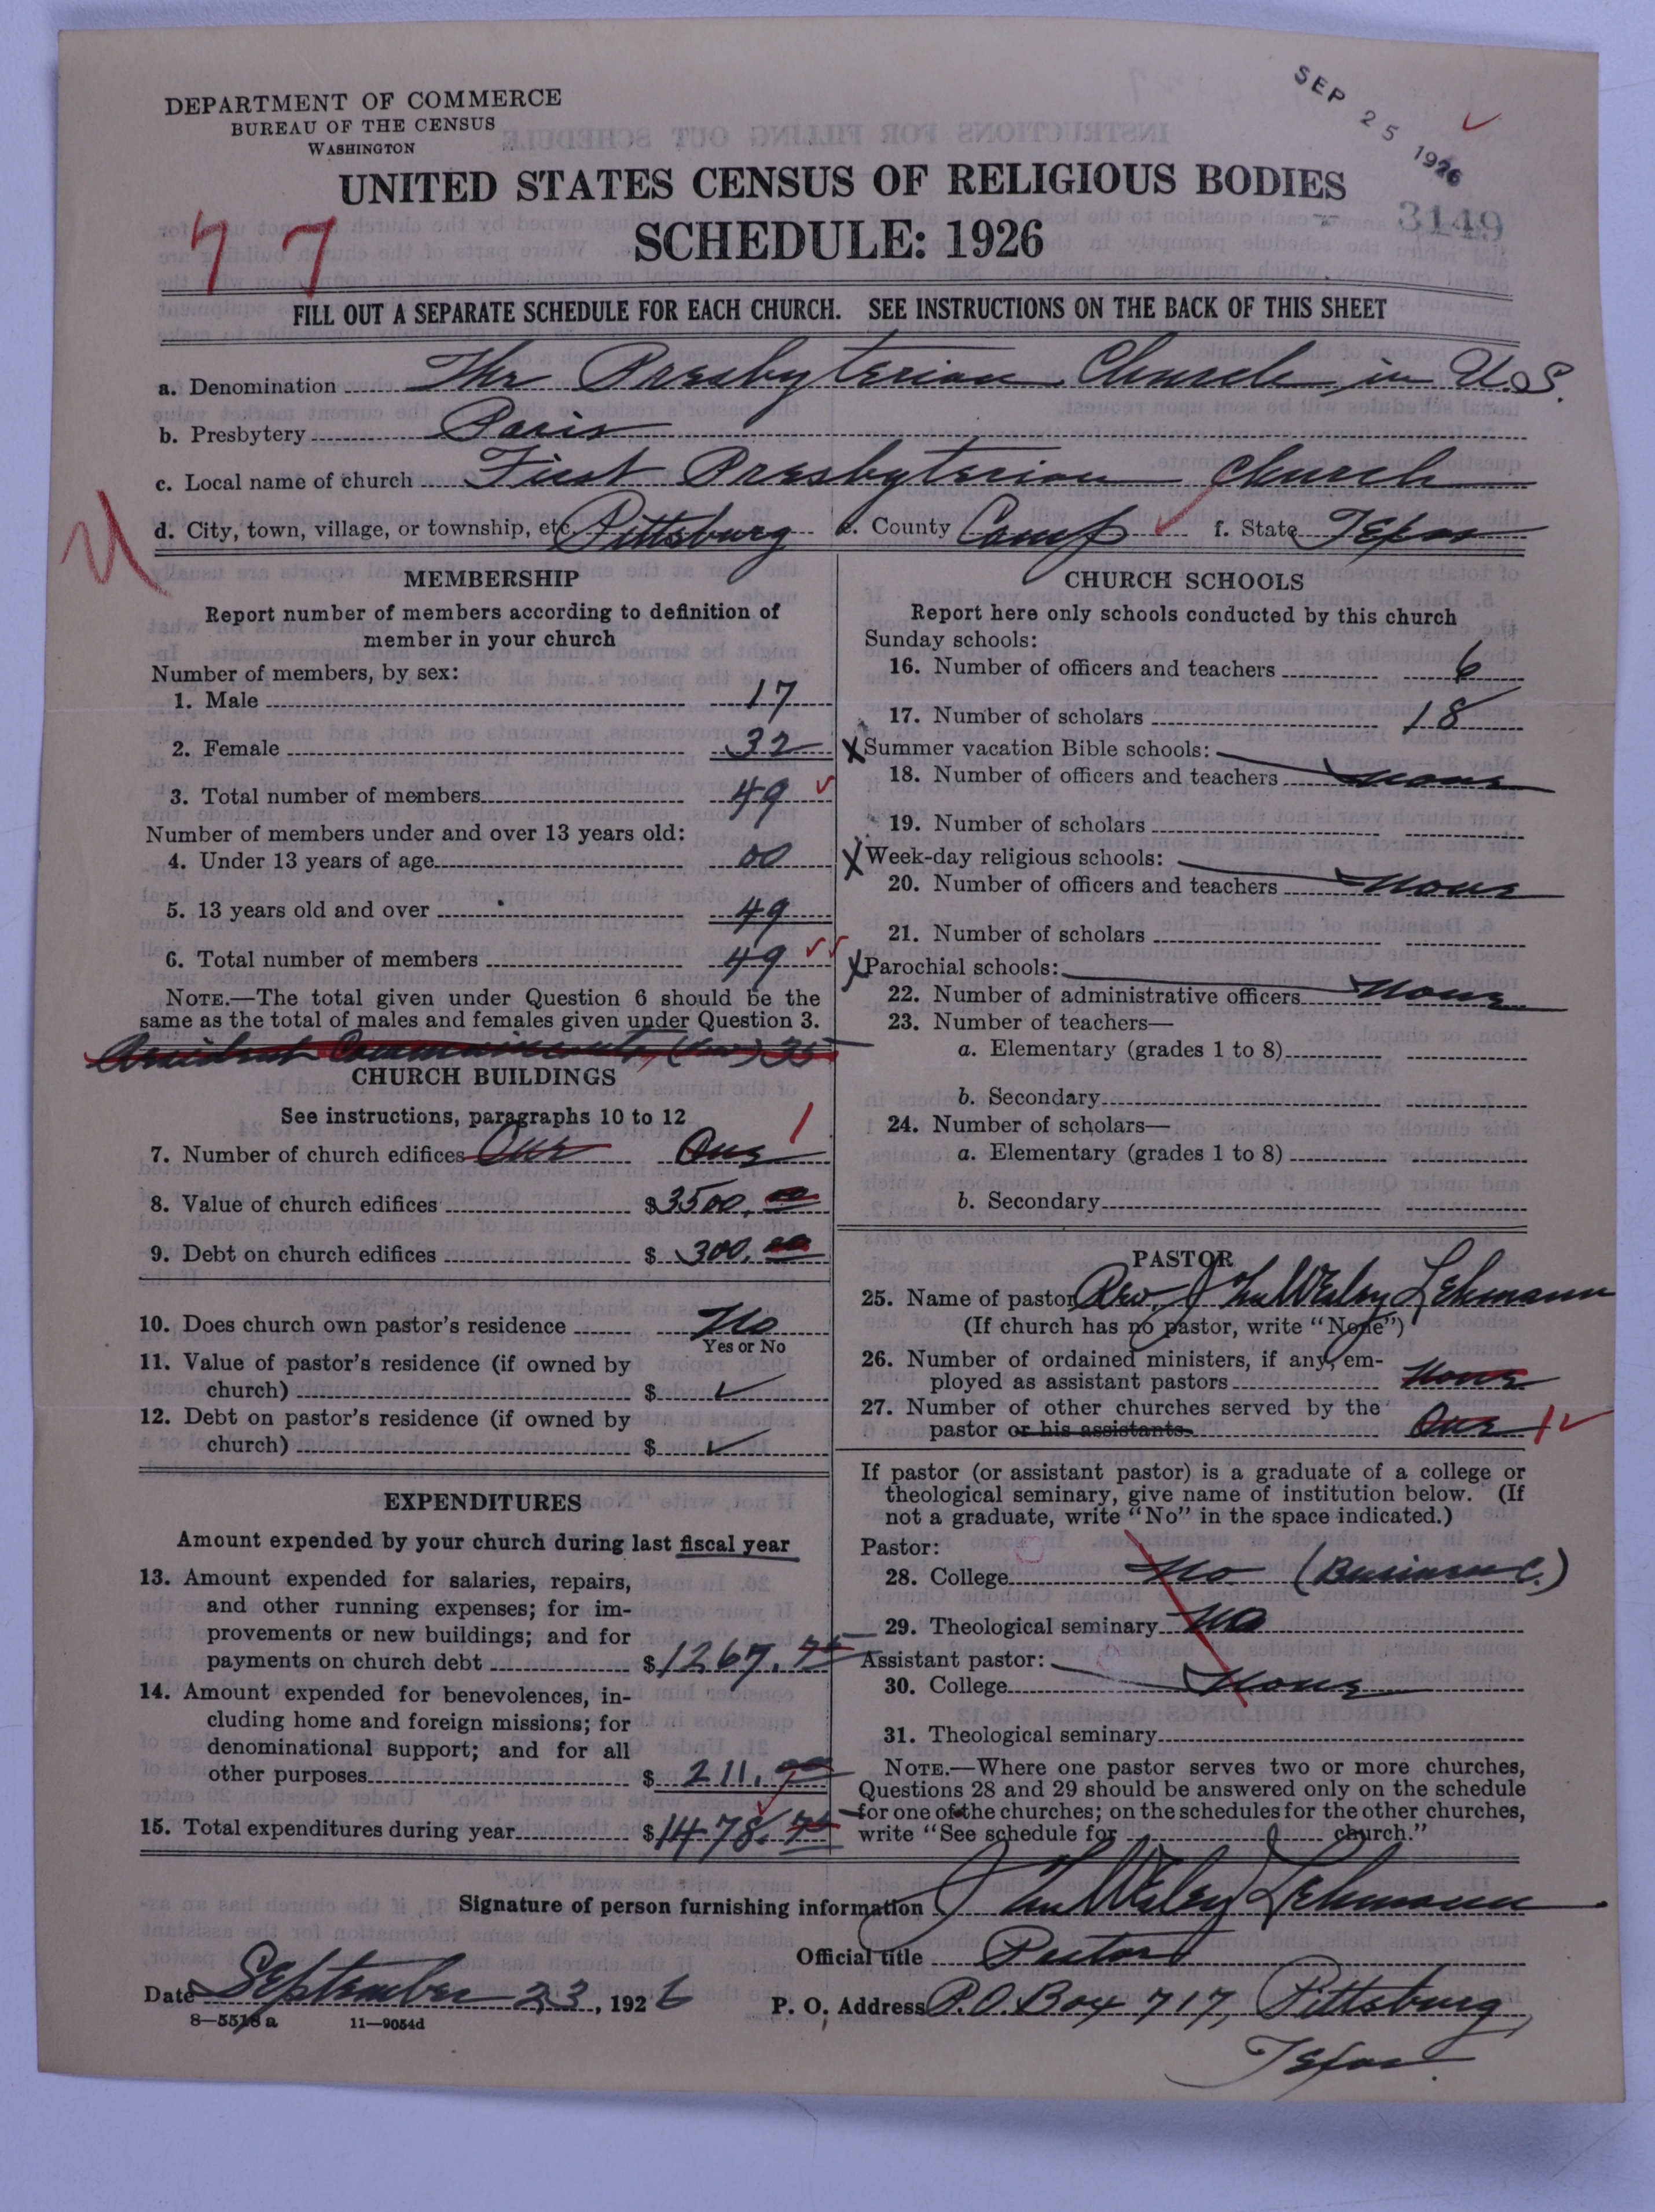 DEPARTMENT OF COMMERCE
BUREAU OF THE CENSUS
WASHINGTON
SEP 25 1926
UNITED STATES CENSUS OF RELIGIOUS BODIES
SCHEDULE: 1926
3149
77
FILL OUT A SEPARATE SCHEDULE FOR EACH CHURCH. SEE INSTRUCTIONS ON THE BACK OF THIS SHEET
a. Denomination The Presbyterian Church in U.S.
b. Presbytery Paris
c. Local name of church First Presbyterian Church
d. City, town, village, or township, etc. Pittsburg e. County Camp f. State Texas
MEMBERSHIP
Report number of members according to definition of
member in your church
Number of members, by sex:
1. Male 17
2. Female 32
3. Total number of members 49
Number of members under and over 13 years old:
4. Under 13 years of age 00
5. 13 years old and over 49
6. Total number of members 49
NOTE.—The total given under Question 6 should be the
same as the total of males and females given under Question 3.
35
CHURCH BUILDINGS
See instructions, paragraphs 10 to 12
7. Number of church edifices One One 1
8. Value of church edifices $3500.00
9. Debt on church edifices $ 300.00
10. Does church own pastor's residence No
Yes or No
11. Value of pastor's residence (if owned by
church) $ ✓
12. Debt on pastor's residence (if owned by
church) $ ✓
EXPENDITURES
Amount expended by your church during last fiscal year
13. Amount expended for salaries, repairs,
and other running expenses; for im-
provements or new buildings; and for
payments on church debt $1267.75
14. Amount expended for benevolences, in-
cluding home and foreign missions; for
denominational support; and for all
other purposes $ 211.00
15. Total expenditures during year $1478.75
CHURCH SCHOOLS
Report here only schools conducted by this church
Sunday schools:
16. Number of officers and teachers 6
17. Number of scholars 18
X Summer vacation Bible schools:
18. Number of officers and teachers None
19. Number of scholars
X Week-day religious schools:
20. Number of officers and teachers None
21. Number of scholars
X Parochial schools:
22. Number of administrative officers None
23. Number of teachers—
a. Elementary (grades 1 to 8)
b. Secondary
24. Number of scholars—
a. Elementary (grades 1 to 8)
b. Secondary
PASTOR
25. Name of pastor Rev. Jno Wesley Lehmann
(If church has no pastor, write "None")
26. Number of ordained ministers, if any, em-
ployed as assistant pastors None
27. Number of other churches served by the
pastor or his assistants One 1 ✓
If pastor (or assistant pastor) is a graduate of a college or
theological seminary, give name of institution below. (If
not a graduate, write "No" in the space indicated.)
Pastor:
28. College No (Business C.)
29. Theological seminary No
Assistant pastor:
30. College None
31. Theological seminary
NOTE.—Where one pastor serves two or more churches,
Questions 28 and 29 should be answered only on the schedule
for one of the churches; on the schedules for the other churches,
write "See schedule for church."
Signature of person furnishing information Jno Wesley Lehmann
Official title Pastor
Date September 23, 1926 P. O. Address P.O. Box 717, Pittsburg
Texas.
8—5518 a 11—9054d